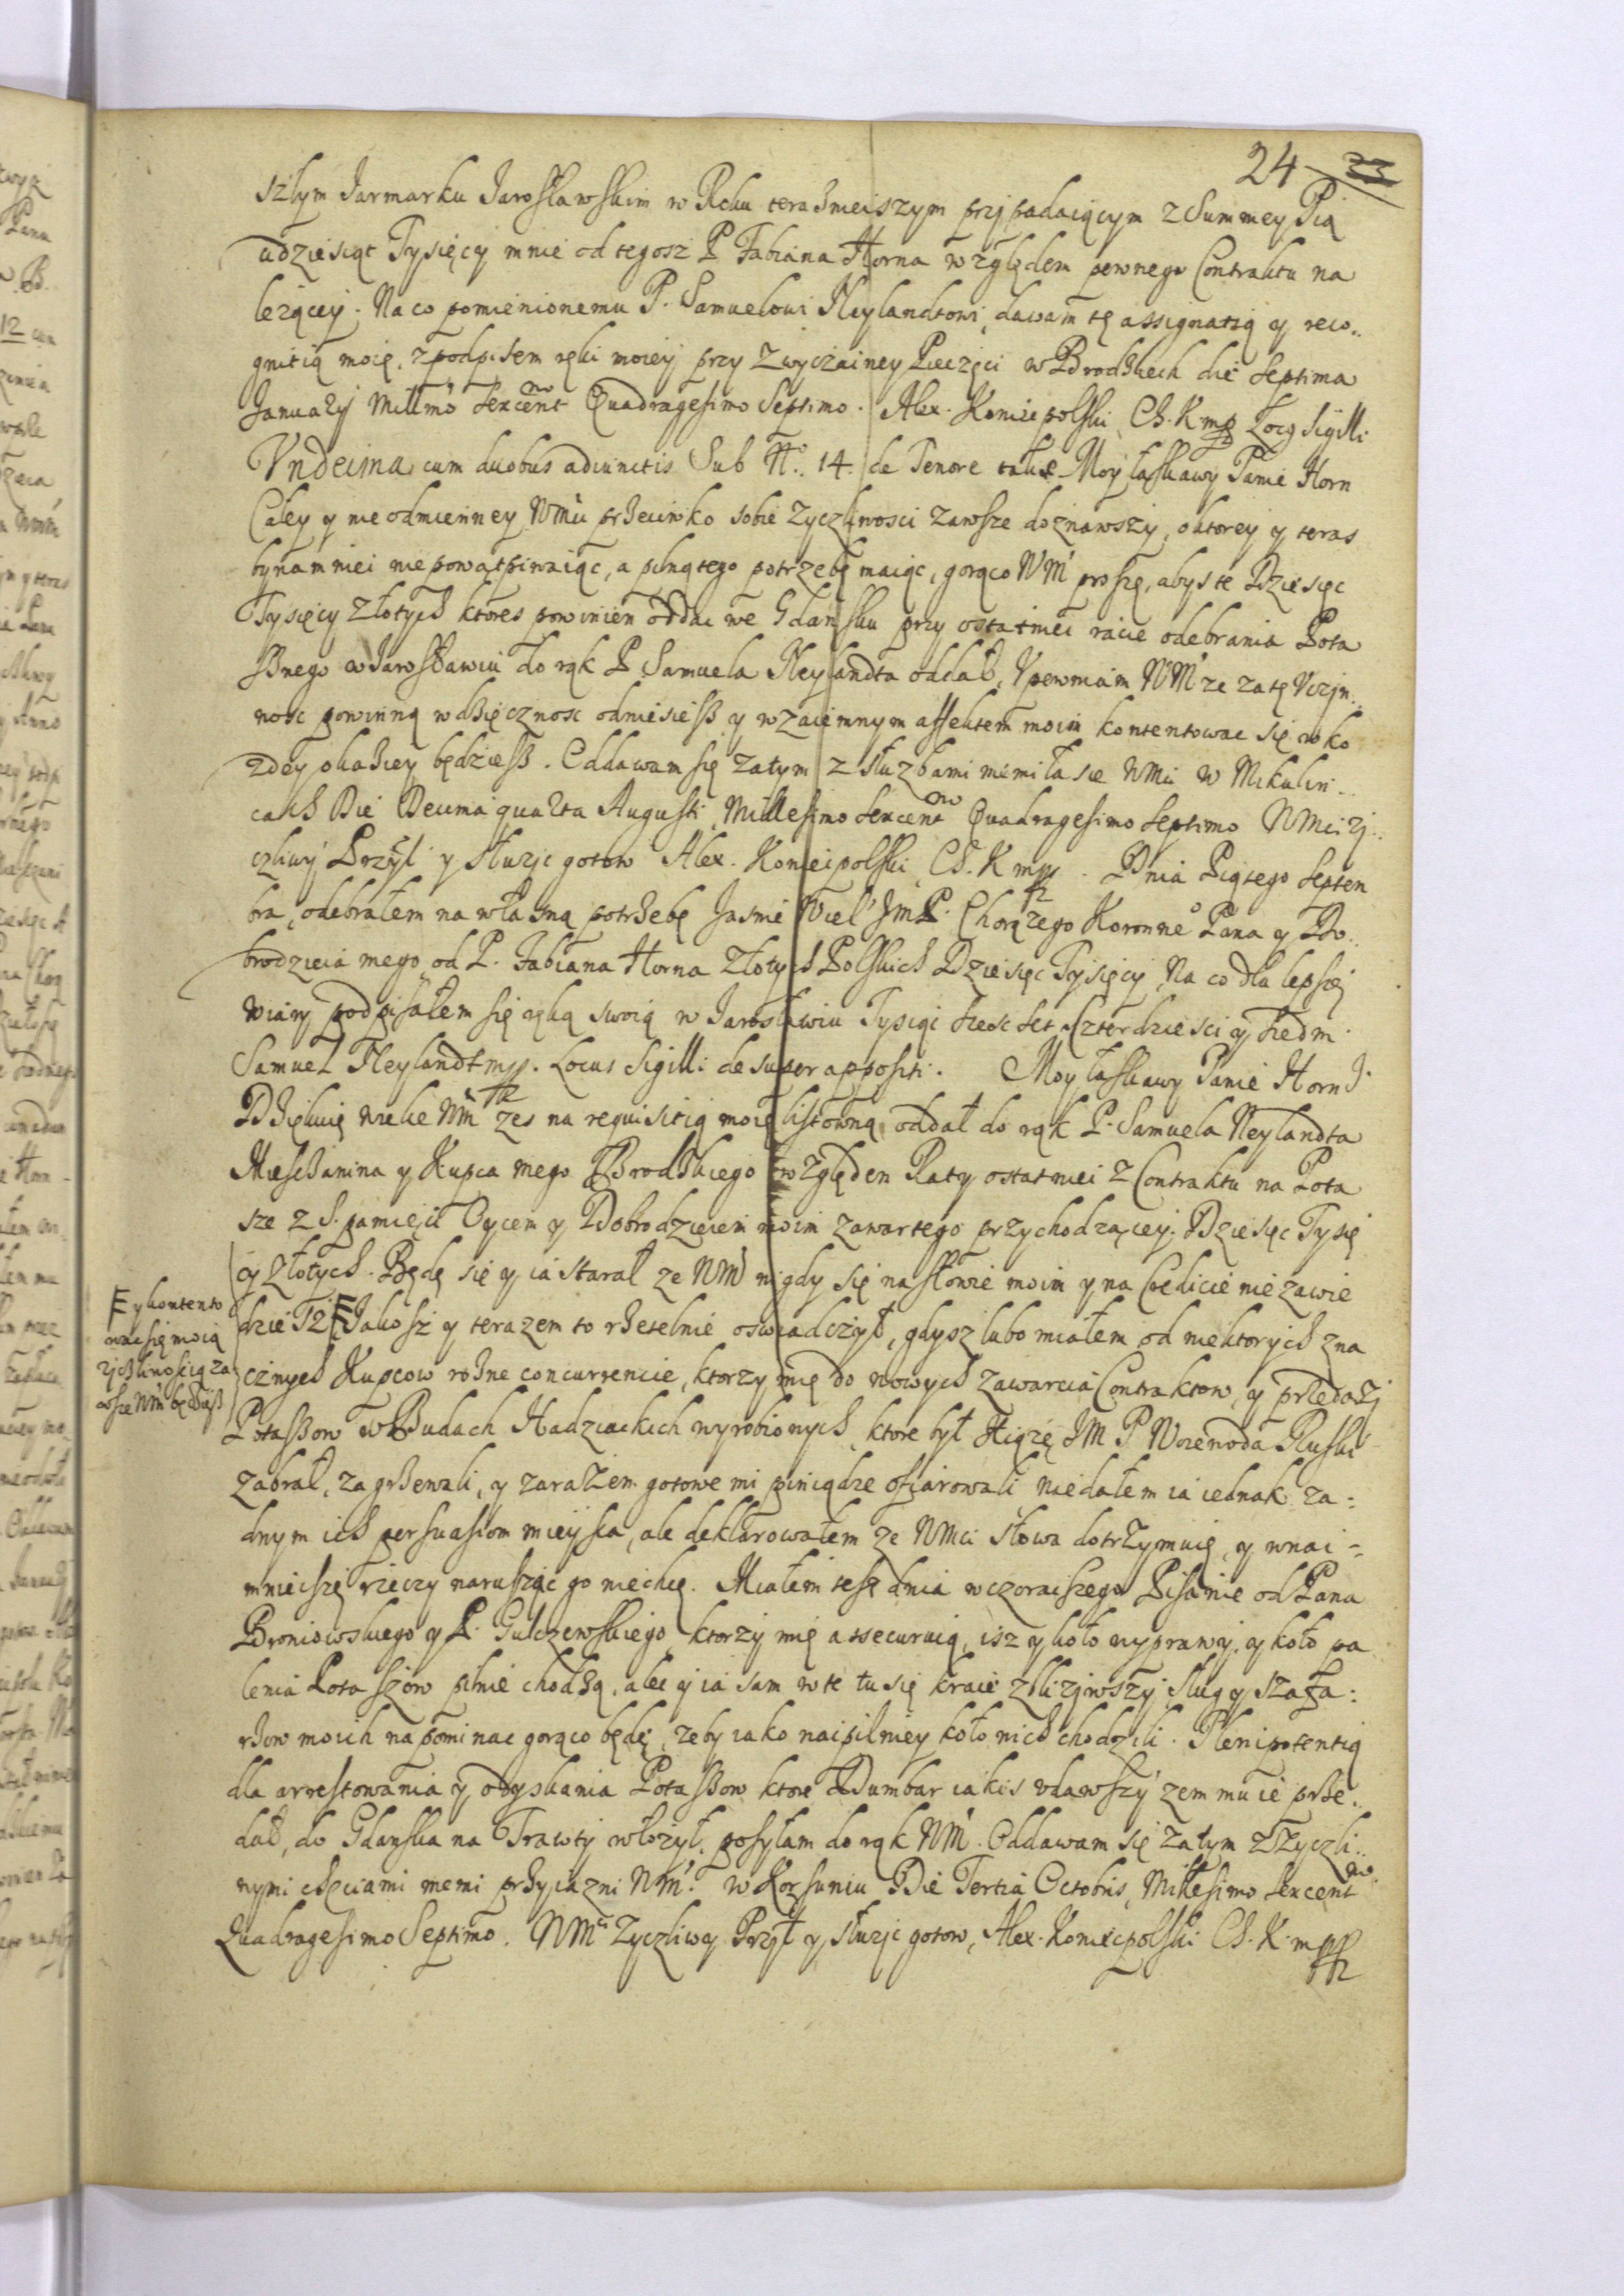 24 23
szłym Jarmarku Jarosławskim w Roku teraznieiszym przypadaiącym z Summey Pią
ądziesiąt Tysięcy mnie od tegosz P Fabiana Horna względem pewnego Contraktu na
leżącey. Na co pomienionemu P. Samuelowi Neylandtowi, dawam tę assignatią y reco..
gnitią moię, z podpisem ręki moiey przy zwyczainey Pieczęci w Brodziech die septima
Januarij Millmo sexcent mo Quadragesimo Septimo. Alex. Koniecpolski Ch. K mp Locg sigilli
Vndecima cum duobus adiunctis Sub No. 14. de Tenore tali Moy łaskawy Panie Horn
Całey y nieodmienney WMci przeciwko sobie zyczliwosci zawsze doznawszy, oktorey y teras
bynamniei niepowątpiwaiąc, a pilną tego potrzebę maiąc, gorąco WM proszę, abys te Dziesięc
Tysięcy Złotych ktores powinien oddac we Gdansku przy ostatniei racie odebrania Pota
sznego w Jarosławiu do rąk P Samuela Neylandta oddał, Vpewniam WM ze za tę Vczyn..
nosc powinną wdzięcznosc odniesiesz y wzaiemnym affektem moim kontentowac się w ko
zdey okaziey będziesz. Oddawam się zatym z słuzbami memi łasce WMci w Mikulin..
cach Die Decima quarta Augusti Millesimo sexcent mo Quadragesimo septimo WMci zy..
czliwy Przyl y słuzyc gotow Alex. Koniecpolski Ch. K mpp. Dnia Piątego Septem
bra, odebrałem na własną potrzebę Jasnie Wiel JmP. Chorązego Koronne o Pana y Do..
brodzieia mego od P. Fabiana Horna Złotych Polskich Dziesięc Tysięcy, Na co dla lepszej
wiary podpisałem się ręką swoią w Jarosławiu Tysiąc szescset Czterdziesci y siedm.
Samuel Neylandt mpp. Locus Sigilli desuper appositi. Moy łaskawy Panie Horn J.
Dziękuię wielce WM zes na requisitią moię listowną oddał do rąk P. Samuela Neylandta
Mieschanina y Kupca mego Brodzkiego względem Raty ostatniei z Contraktu na Pota
sze z S. pamięci Oycem y Dobrodzieiem moim zawartego przychodzącey. Dziesięc Tysię
cy Złotych. Będę się y ia starał ze WM nigdy się na słowie moim y na Credicie niezawie
dzieTz Jakosz y terazem to rzetelnie oswiadczył, gdysz lubo miałem od niektorych zna
cznych Kupcow rozne concurrencie, ktorzy mię do nowych zawarcia Contraktow y przedazy
Potaszow w Budach Hadziackich wyrobionych, ktore był Xiązę JM P Woiewoda Ruski
zabrał, zagrzewali, y zarazem gotowe mi pieniądze ofiarowali niedałem ia iednak za:
dnym ich persuasiom mieysca, ale deklarowałem ze WMci słowa dotrzymuię, y wnai-
mnieiszej rzeczy naruszac go niechcę. Miałem tesz dnia wczoraiszego Pisanie od Pana
Broniowskiego y P. Gulczewskiego ktorzy mię assecuruią, isz y koło wyprawy y koło pa
lenia Potaszow pilnie chodzą, alec y ia sam w te tu się kraie zblizywszy sług y szafa:
rzow moich napominac gorąco będę, zeby iako naipilniey koło nich chodzili. Plenipotentią
dla arrestowania y odyskania Potaszow ktore Dumbar iakis vdawszy zem mu ie prze..
dał, do Gdanska na Trawty włozył, posyłam do rąk WM. Oddawam się zatym z zyczli..
wymi chęciami memi przyiazni WM. w Korsuniu Die Tertia Octobris, Millesimo sexcent mo
Quadragesimo Septimo. WMci Zyczliwy Przył y słuzyc gotow, Alex. Koniecpolski Ch. K. mpp
y kontento
wac się moią
zyczliwoscią za
wsze WM będziesz